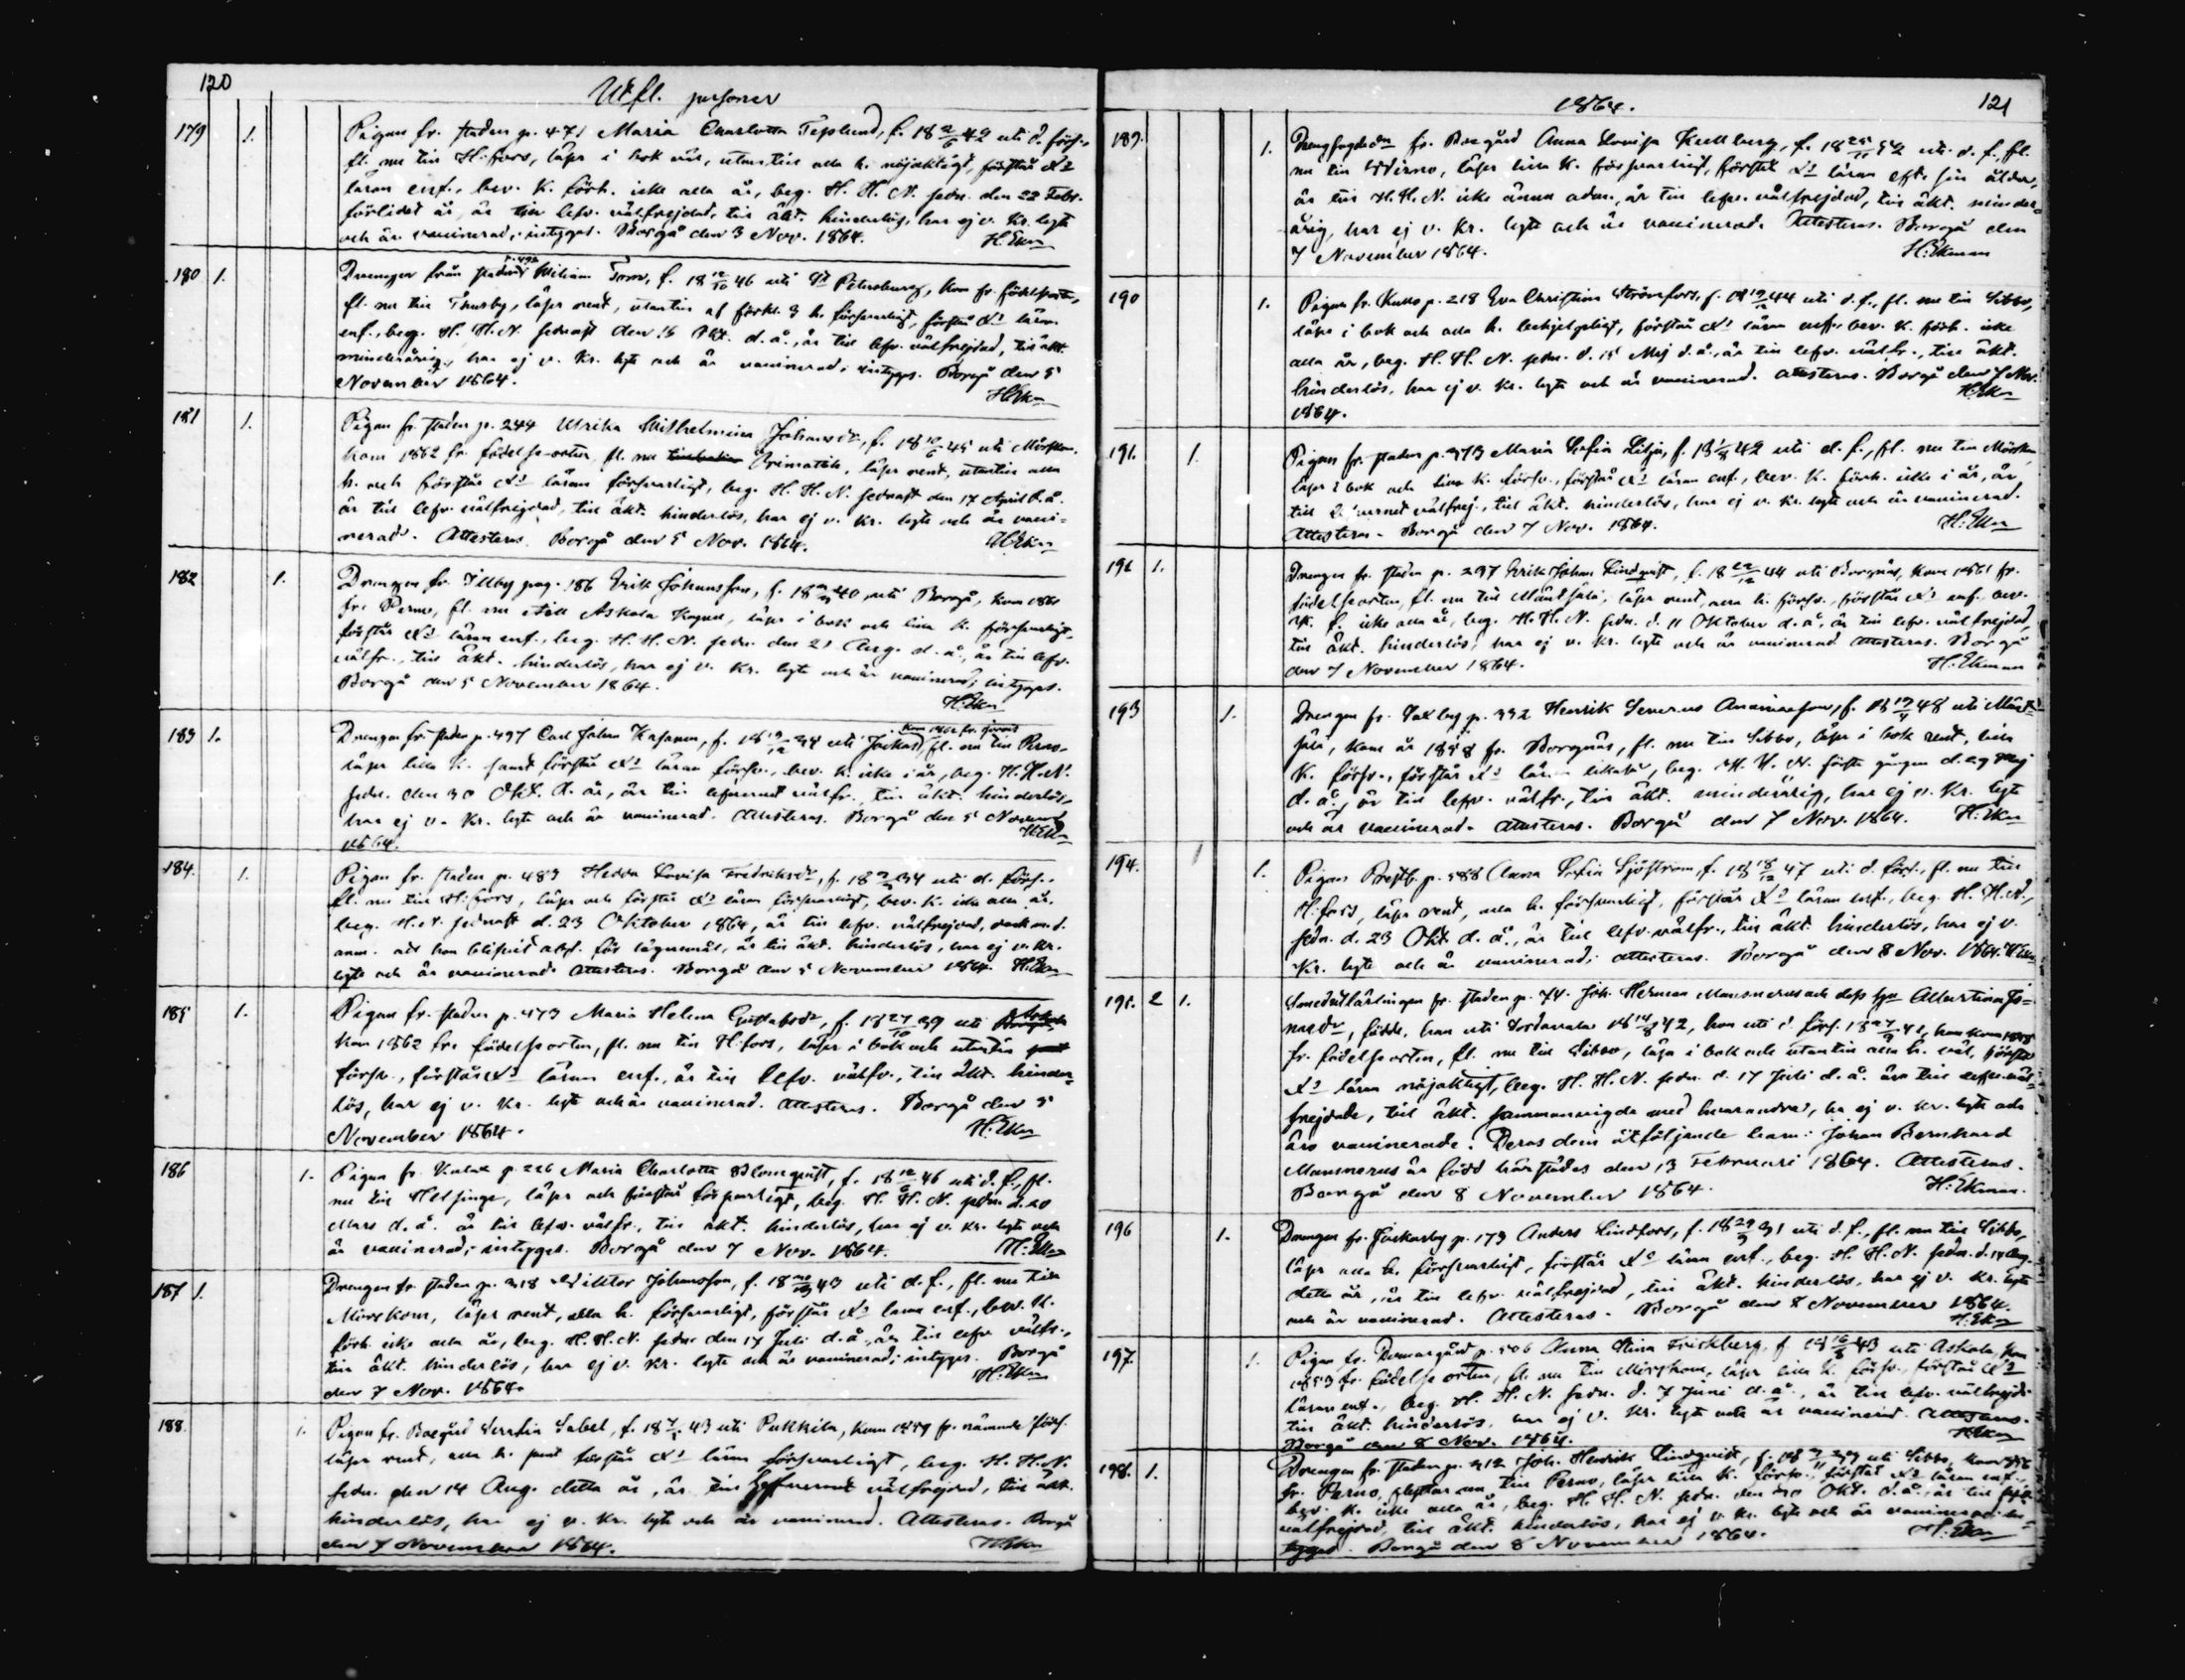 120
Utfl. personer
179 1. Pigan fr. staden p. 471 Maria Charlotta Teplund, f. 18 2/6 42 uti d. förs.,
fl. nu till H:fors, läser i bok väl, utantill alla h. nöjaktigt, förstår Xs
läran enf., bev. K. förh. icke alla år, beg. H. H. N. sedn. den 22 Febr.
förlidet år, är till lefv. välfrejdad, till äkt. hinderlös, har ej v. Kr. lyte
och är vaccinerad; intygas. Borgå den 3 Nov. 1864. H. Ekn
180 1. Drengen från staden p. 492 Wiliam Torn, f. 18 12/10 46 uti St Petersburg, kom fr. födelseorten,
fl. nu till Thusby, läser rent, utantill af förkl. 3 h. försvarligt, förstår Xs läran
enf., beg. H. H. N. sednast den 16 Okt. d. å., är till lefv. välfrejdad, till äkt.
minderårig, har ej v. Kr. lyte och är vaccinerad; intygas. Borgå den 5
November 1864. H. Ekn
181 1. Pigan fr. staden p. 244 Ulrika Wilhelmina Johansdr, f. 18 10/6 45 uti Mörskom,
kom 1862 fr. födelseorten, fl. nu till Orimatila, läser rent, utantill alla
h. och förstår Xs läran försvarligt, beg. H. H. N. sednast den 17 April d. å.
är till lefv. välfrejdad, till äkt. hinderlös, har ej v. Kr. lyte och är vacci-
nerad. Attesteras. Borgå den 5 Nov. 1864. H. Ekn
182 1. Drengen fr. Illby pag. 186 Erik Johansson, f. 18 40 uti Borgå, kom 1861
fr. Perno, fl. nu till Askola Kapell, läser i bok och lilla K. försvarligt,
förstår Xs läran enf., beg. H. H. N. sedn. den 21 Aug. d. å., är till lefv.
välfr., till äkt. hinderlös, har ej v. Kr. lyte och är vaccinerad; intygas.
Borgå den 5 November 1864. H. Ekn
183 1. Drengen fr. staden p. 497 Carl Johan Kasanen, f. 18 19/12 34 uti Jockas, fl. nu till Perno,
läser lilla K. samt förstår Xs läran försv., bev. K. icke i år, beg. H. H. N.
sedn. den 30 Okt. d. år, är till lefvernet välfr., till äkt. hinderlös,
har ej v. Kr. lyte och är vaccinerad. Attesteras. Borgå den 5 November
1864. H. Ekn
184. 1. Pigan fr. staden p. 483 Hedda Lovisa Fredriksdr, f. 18 34 uti d. förs.,
fl. nu till H:fors, läser och förstår Xs läran försvarligt, bev. K. icke alla år,
beg. H. N. sednast d. 23 Oktober 1864, är till lefv. välfrejdad,
anm. att hon blifvit absf. för lägersmål, är till äkt. hinderlös, har ej v. Kr.
lyte och är vaccinerad. Attesteras. Borgå den 5 November 1864. H. Ekn
185 1. Pigan fr. staden p. 473 Maria Helena Gustafsdr, f. 18 27/10 39 uti Askola
kom 1862 fr. födelseorten, fl. nu till H:fors, läser i bok och utantill
försv., förstår Xs läran enf., är till lefv. välfr., till äkt. hinder-
lös, har ej v. Kr. lyte och är vaccinerad. Attesteras. Borgå den 5
November 1864. H. Ekn
186 1. Pigan fr. p. 226 Maria Charlotta Blomqvist, f. 18 12/6 46 uti d. f., fl.
nu till Helsinge, läser och förstår försvarligt, beg. H. H. N. sedn. d. 20
Mars d. å. är till lefv. välfr., till äkt. hinderlös, har ej v. Kr. lyte och
är vaccinerad; intygas. Borgå den 7 Nov. 1864. H. Ekn
187 1. Drengen fr. staden p. 318 Wiktor Johansson, f. 18 43 uti d. f., fl. nu till
Mörskom, läser rent, alla h. försvarligt, förstår Xs läran enf., bev. K.
förh. icke alla år, beg. H. H. N. sedn. den 17 Juli d. å., är till lefv välfr.,
till äkt. hinderlös, har ej v. Kr. lyte och är vaccinerad; intygas. Borgå
den 7 Nov. 1864. H. Ekn
188 1. Pigan fr. Boegård Serafia Sabel, f. 18 43 uti Pukkila, kom 1859 fr. nämnde förs.
läser rent, alla h. samt förstår Xs läran försvarligt, beg. H. H. N.
sedn. den 14 Aug. detta år, är till lefvernet välfrejdad, till äkt.
hinderlös, har ej v. Kr. lyte och är vaccinerad. Attesteras. Borgå
den 7 November 1864. H. Ekn
1864. 121
189. 1. Drengfogdedn fr. Boegård Anna Lovisa Kullberg, f. 18 25/11 52 uti d. f., fl.
nu till , läser lilla K. försvarligt, förstår Xs läran eft. sin ålder,
är till H. H. N. icke ännu adm., är till lefv. välfrejdad, till äkt. minder-
årig, har ej v. Kr. lyte och är vaccinerad. Attesteras. Borgå den
7 November 1864. H. Ekman
190 1. Pigan fr. Kullo p. 218 Eva Christina Strömfors, f. 18 44 uti d. f., fl. nu till Sibbo,
läser i bok och alla h. behjelpligt, förstår Xs läran enf., bev. K. förh. icke
alla år, beg. H. H. N. sedn. d. 15 Maj d. å., är till lefv. välfr., till äkt.
hinderlös, har ej v. Kr. lyte och är vaccinerad. Attesteras. Borgå den 7 Nov.
1864. H. Ekn
191. 1. Pigan fr. staden p. 373 Maria Sofia Lilja, f. 18 42 uti d. f., fl. nu till Mörskom,
läser i bok och lilla K. försv., förstår Xs läran enf., bev. K. förh. icke i år, är
till välfrej., till äkt. hinderlös, har ej v. Kr. lyte och är vaccinerad.
Attesteras. Borgå den 7 Nov. 1864. H. Ekn
192 1. Drengen fr. staden p. 297 Erik Johan Lindqvist, f. 18 22/12 44 uti Borgnäs, kom 1861 fr.
födelseorten, fl. nu till Mäntsälä, läser rent, alla h. försv., förstår Xs enf. bev.
K. f. icke alla år, beg. H. H. N. sedn. d. 11 Oktober d. å., är till lefv. välfrejdad,
till äkt. hinderlös, har ej v. Kr. lyte och är vaccinerad. Attesteras. Borgå
den 7 November 1864. H. Ekman
193 1. Drengen fr. Saxby p. 332 Henrik Severus Ananiasson, f. 18 19/4 48 uti Mänt-
sälä, kom år 1858 fr. Borgnäs, fl. nu till Sibbo, läser i bok rent, lilla
K. försv., förstår Xs läran , beg. H. H. N. första gången d. 29 Maj
d. å., är till lefv. välfr., till äkt. minderårig, har ej v. Kr. lyte
och är vaccinerad. Attesteras. Borgå den 7 Nov. 1864. H. Ekn
194. 1. Pigan p. 588 Anna Sofia Sjöström, f. 18 18/12 47 uti d. förs., fl. nu till
H:fors, läser rent, alla h. försvarligt, förstår Xs läran enf., beg. H. H. N.,
sedn. d. 23 Okt d. å., är till lefv. välfr., till äkt. hinderlös, har ej v.
Kr. lyte och är vaccinerad; attesteras. Borgå den 8 Nov. 1864. H. Ekn
195. 2 1. Smedslärlingen fr. staden p. 74. Joh. Herman Mansnerus och dess hu Albertina Jo-
nasdr, födde, han uti Sordavala 18 14/8 42, hon uti d. förs. 18 41, han kom 1858
fr. födelseorten, fl. nu till Sibbo, läsa i bok och utantill alla h. väl, förstår
Xs läran nöjaktigt, beg. H. H. N. sedn. d. 17 Juli d. å. äro till lefv. väl-
frejdade, till äkt. sammanvigde med hvarandra, ha ej v. Kr. lyte och
äro vaccinerade. Deras dem åtföljande barn: Johan Bernhard
Mansnerus är född härstädes den 13 Februari 1864. Attesteras.
Borgå den 8 November 1864. H. Ekman.
196 1. Drengen fr. Jackarby p. 173 Anders Lindfors, f. 18 31 uti d. f., fl. nu till Sibbo,
läser alla h. försvarligt, förstår Xs läran enf., beg. H. H. N. sedn. d. 14 Aug.
detta år, är till lefv. välfrejdad, till äkt. hinderlös, har ej v. Kr. lyte
och är vaccinerad. Attesteras. Borgå den 8 November 1864. H. Ekn
197 1. Pigan fr. Domargård p. 506 Anna Stina Frickberg, f. 18 16/8 43 uti Askola, kom
1853 fr. födelseorten, fl. nu till Mörskom, läser lilla K. försv., förstår Xs
läran enf., beg. H. H. N. sedn. d. 7 Juni d. å., är till lefv. välfrejd.
till äkt. hinderlös, har ej v. Kr. lyte och är vaccinerad. Attesteras.
Borgå den 8 Nov. 1864. H. Ekn
198. 1. Drengen fr. staden p. 312 Joh. Henrik Lindqvist, f. 18 39 uti Sibbo, kom
fr. Perno, flyttar nu till Perno, läser lilla K. försv., förstår Xs läran enf.,
bev. K. icke alla år, beg. H. H. N. sedn. den 30 Okt. d. å., är till
välfrejdad, till äkt. hinderlös, har ej v. Kr. lyte och är vaccinerad; in-
tygas. Borgå den 8 November 1864. H. Ekn